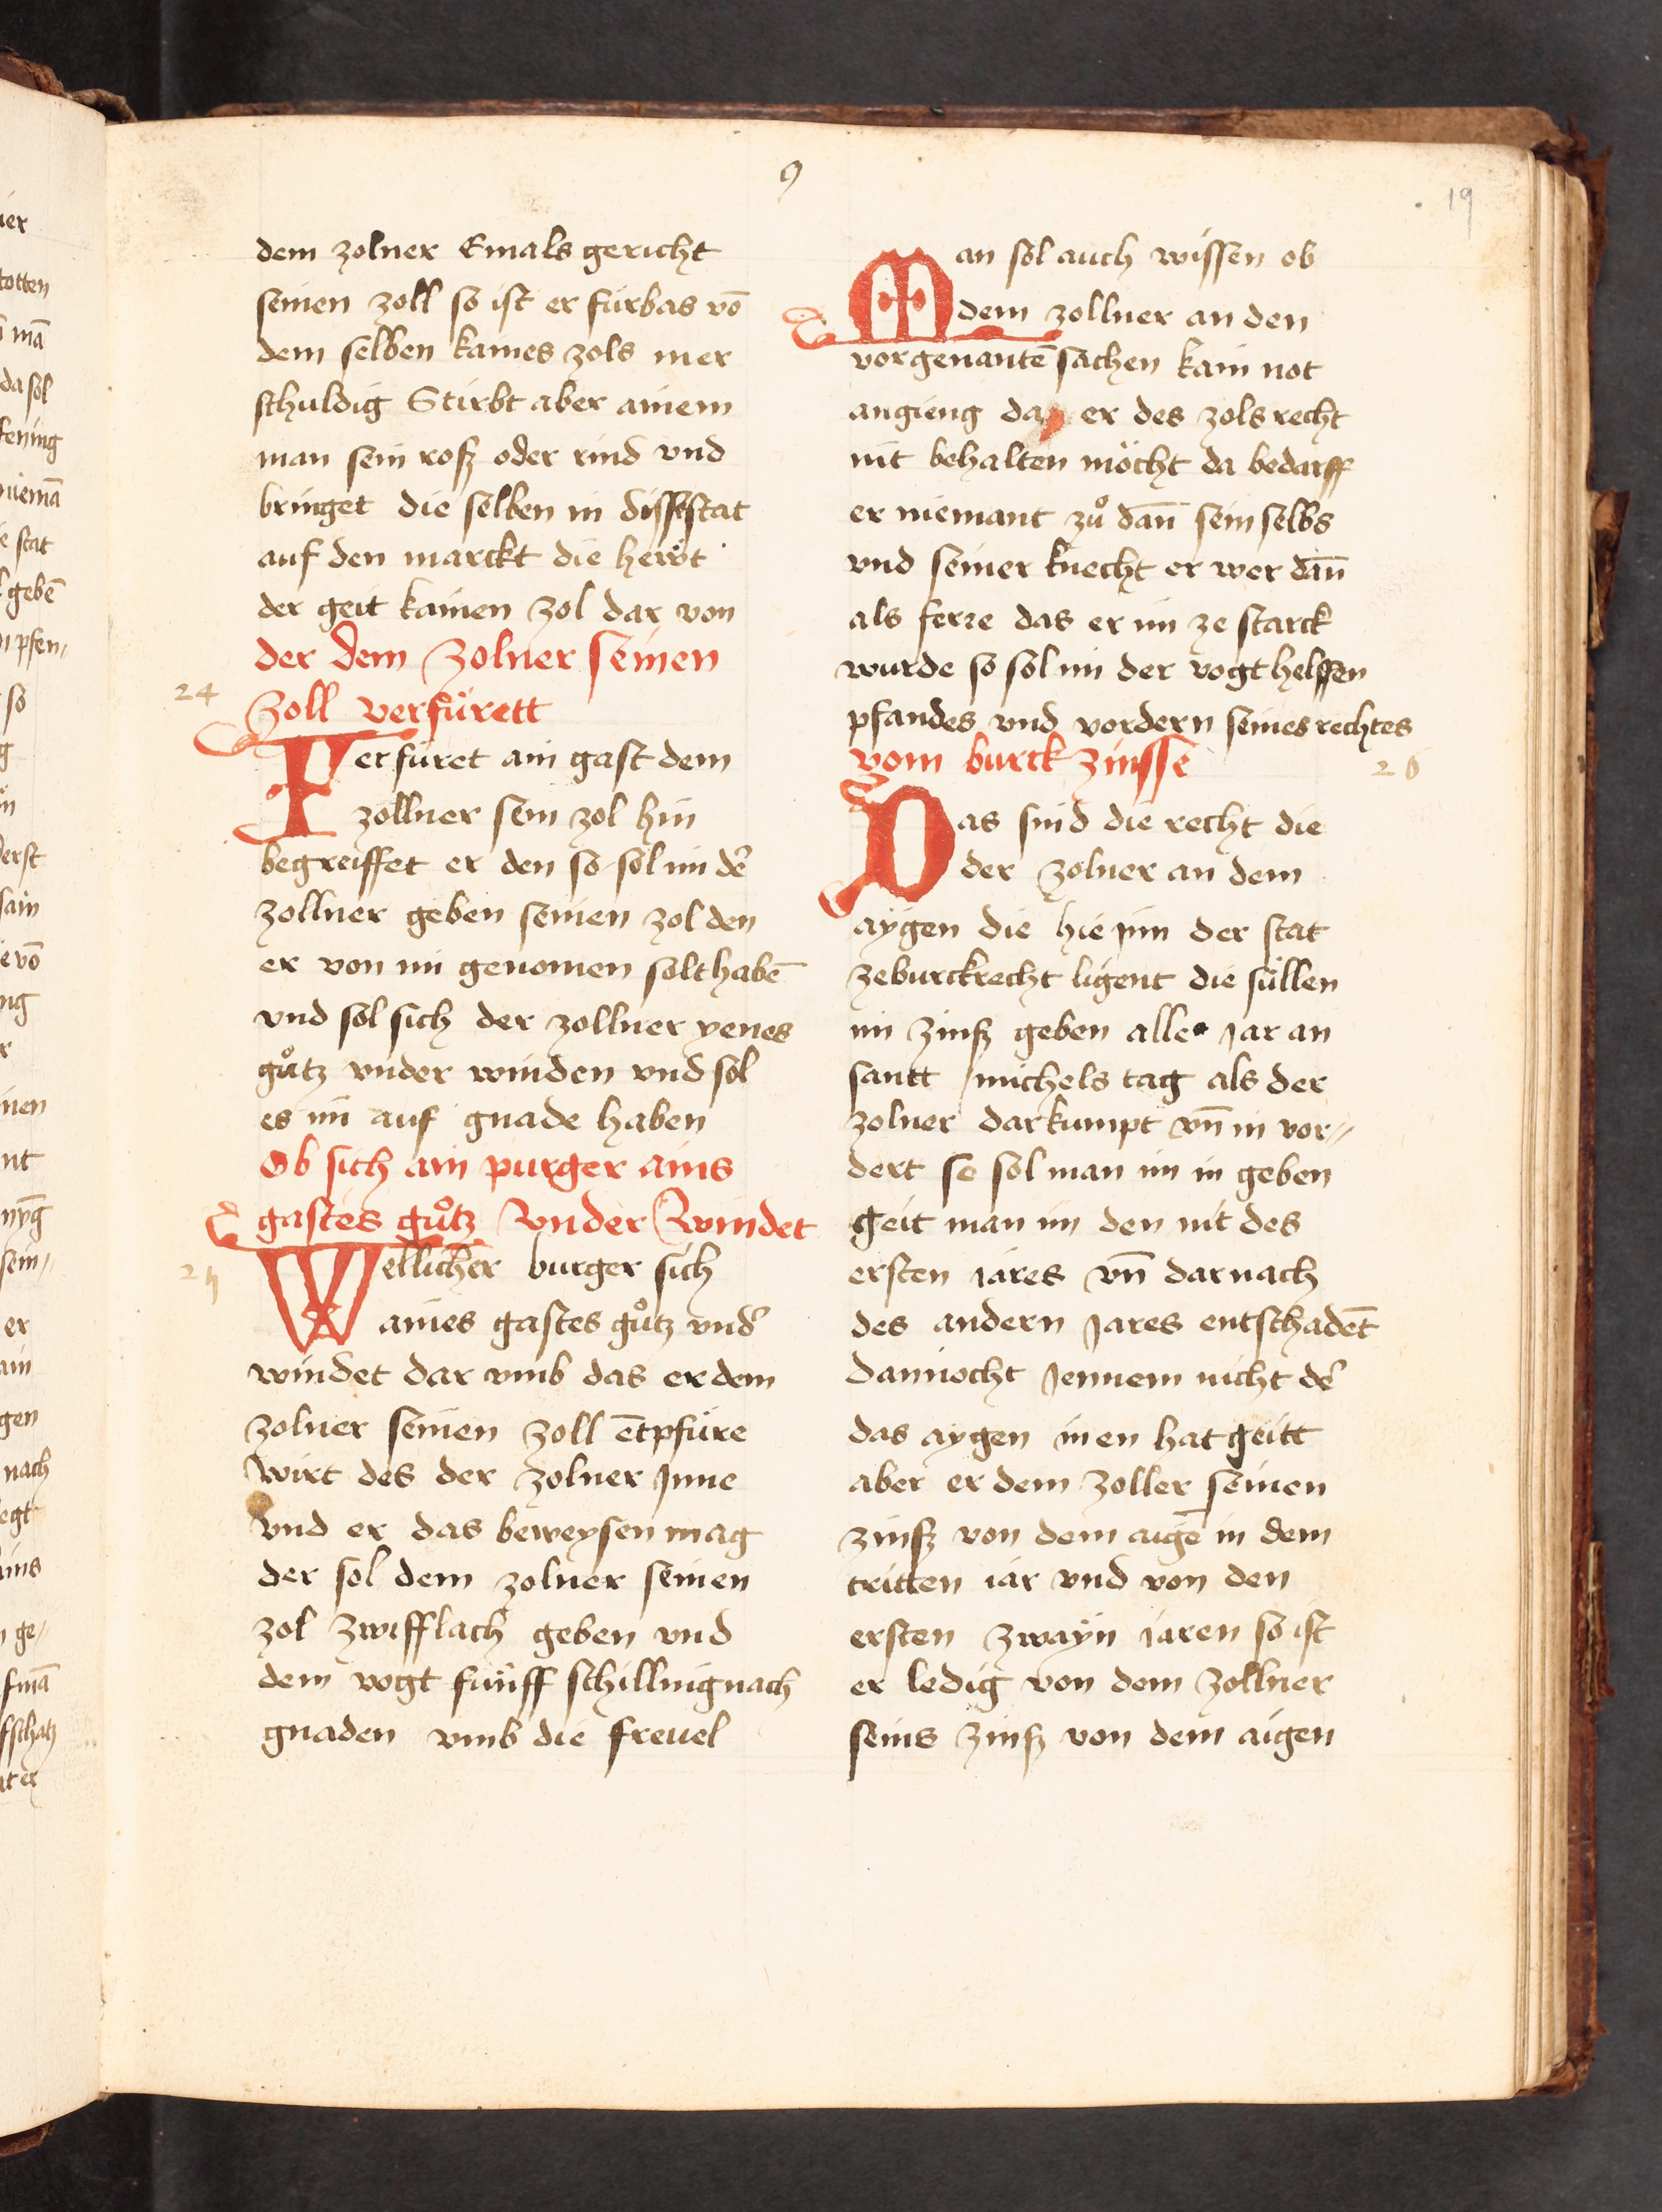 9
19
dem zolner Emals gericht
seinen zoll so ist er fürbas vō
dem selben kaines zols mer
schuldig Stirbt aber ainem
man sein rosz oder rind vnd
bringet die selben in diße stat
auf den marckt die hewt
der geit kainen zol dar von
der dem zolner seinen
24
zoll verfürett
Verfüret ain gast dem
zollner sein zol hin
begreiffet er den so sol im dˀ
zollner geben seinen zol den
er von im genomen solt habē
vnd sol sich der zollner yenes
gůtz vnder winden vnd sol
es im auf gnade haben
Ob sich ain purger ains
gastes gůtz vnder windet
25
Wellicher burger sich
aines gastes gůtz vndˀ
windet dar vmb das er dem
zolner seinen zoll ētpfüre
wirt des der zolner Jnne
vnd er das beweysen mag
der sol dem zolner seinen
zol zwifflach geben vnd
dem vogt fünff schilling nach
gnaden vmb die freuel
Man sol auch wissen ob
dem zollner an den
vorgenantē sachen kain not
angieng das er des zols recht
nit behalten möcht da bedarff
er niemant zů dañ sein selbs
vnd seiner knecht er wer dañ
als ferre das er im ze starck
wurde so sol im der vogt helffen
pfandes vnd vordern seines rechtes
vom burck zinsse
26
Das sind die recht die
der zolner an dem
aygen die hie jnn der stat
ze burckrecht ligent die süllen
im zinsz geben alle Jar an
santt michels tag als der
zolner dar kumpt vñ in vor=
dert so sol man im in geben
geit man im den nit des
ersten iares vñ darnach
des andern Jares entschadēt
dannocht Jennem nicht dˀ
das aygen inen hat geitt
aber er dem zoller seinen
zinsz von dem aigē in dem
tritten iar vnd von den
ersten zwayn iaren so ist
er ledig von dem zollner
seins zinsz von dem aigen